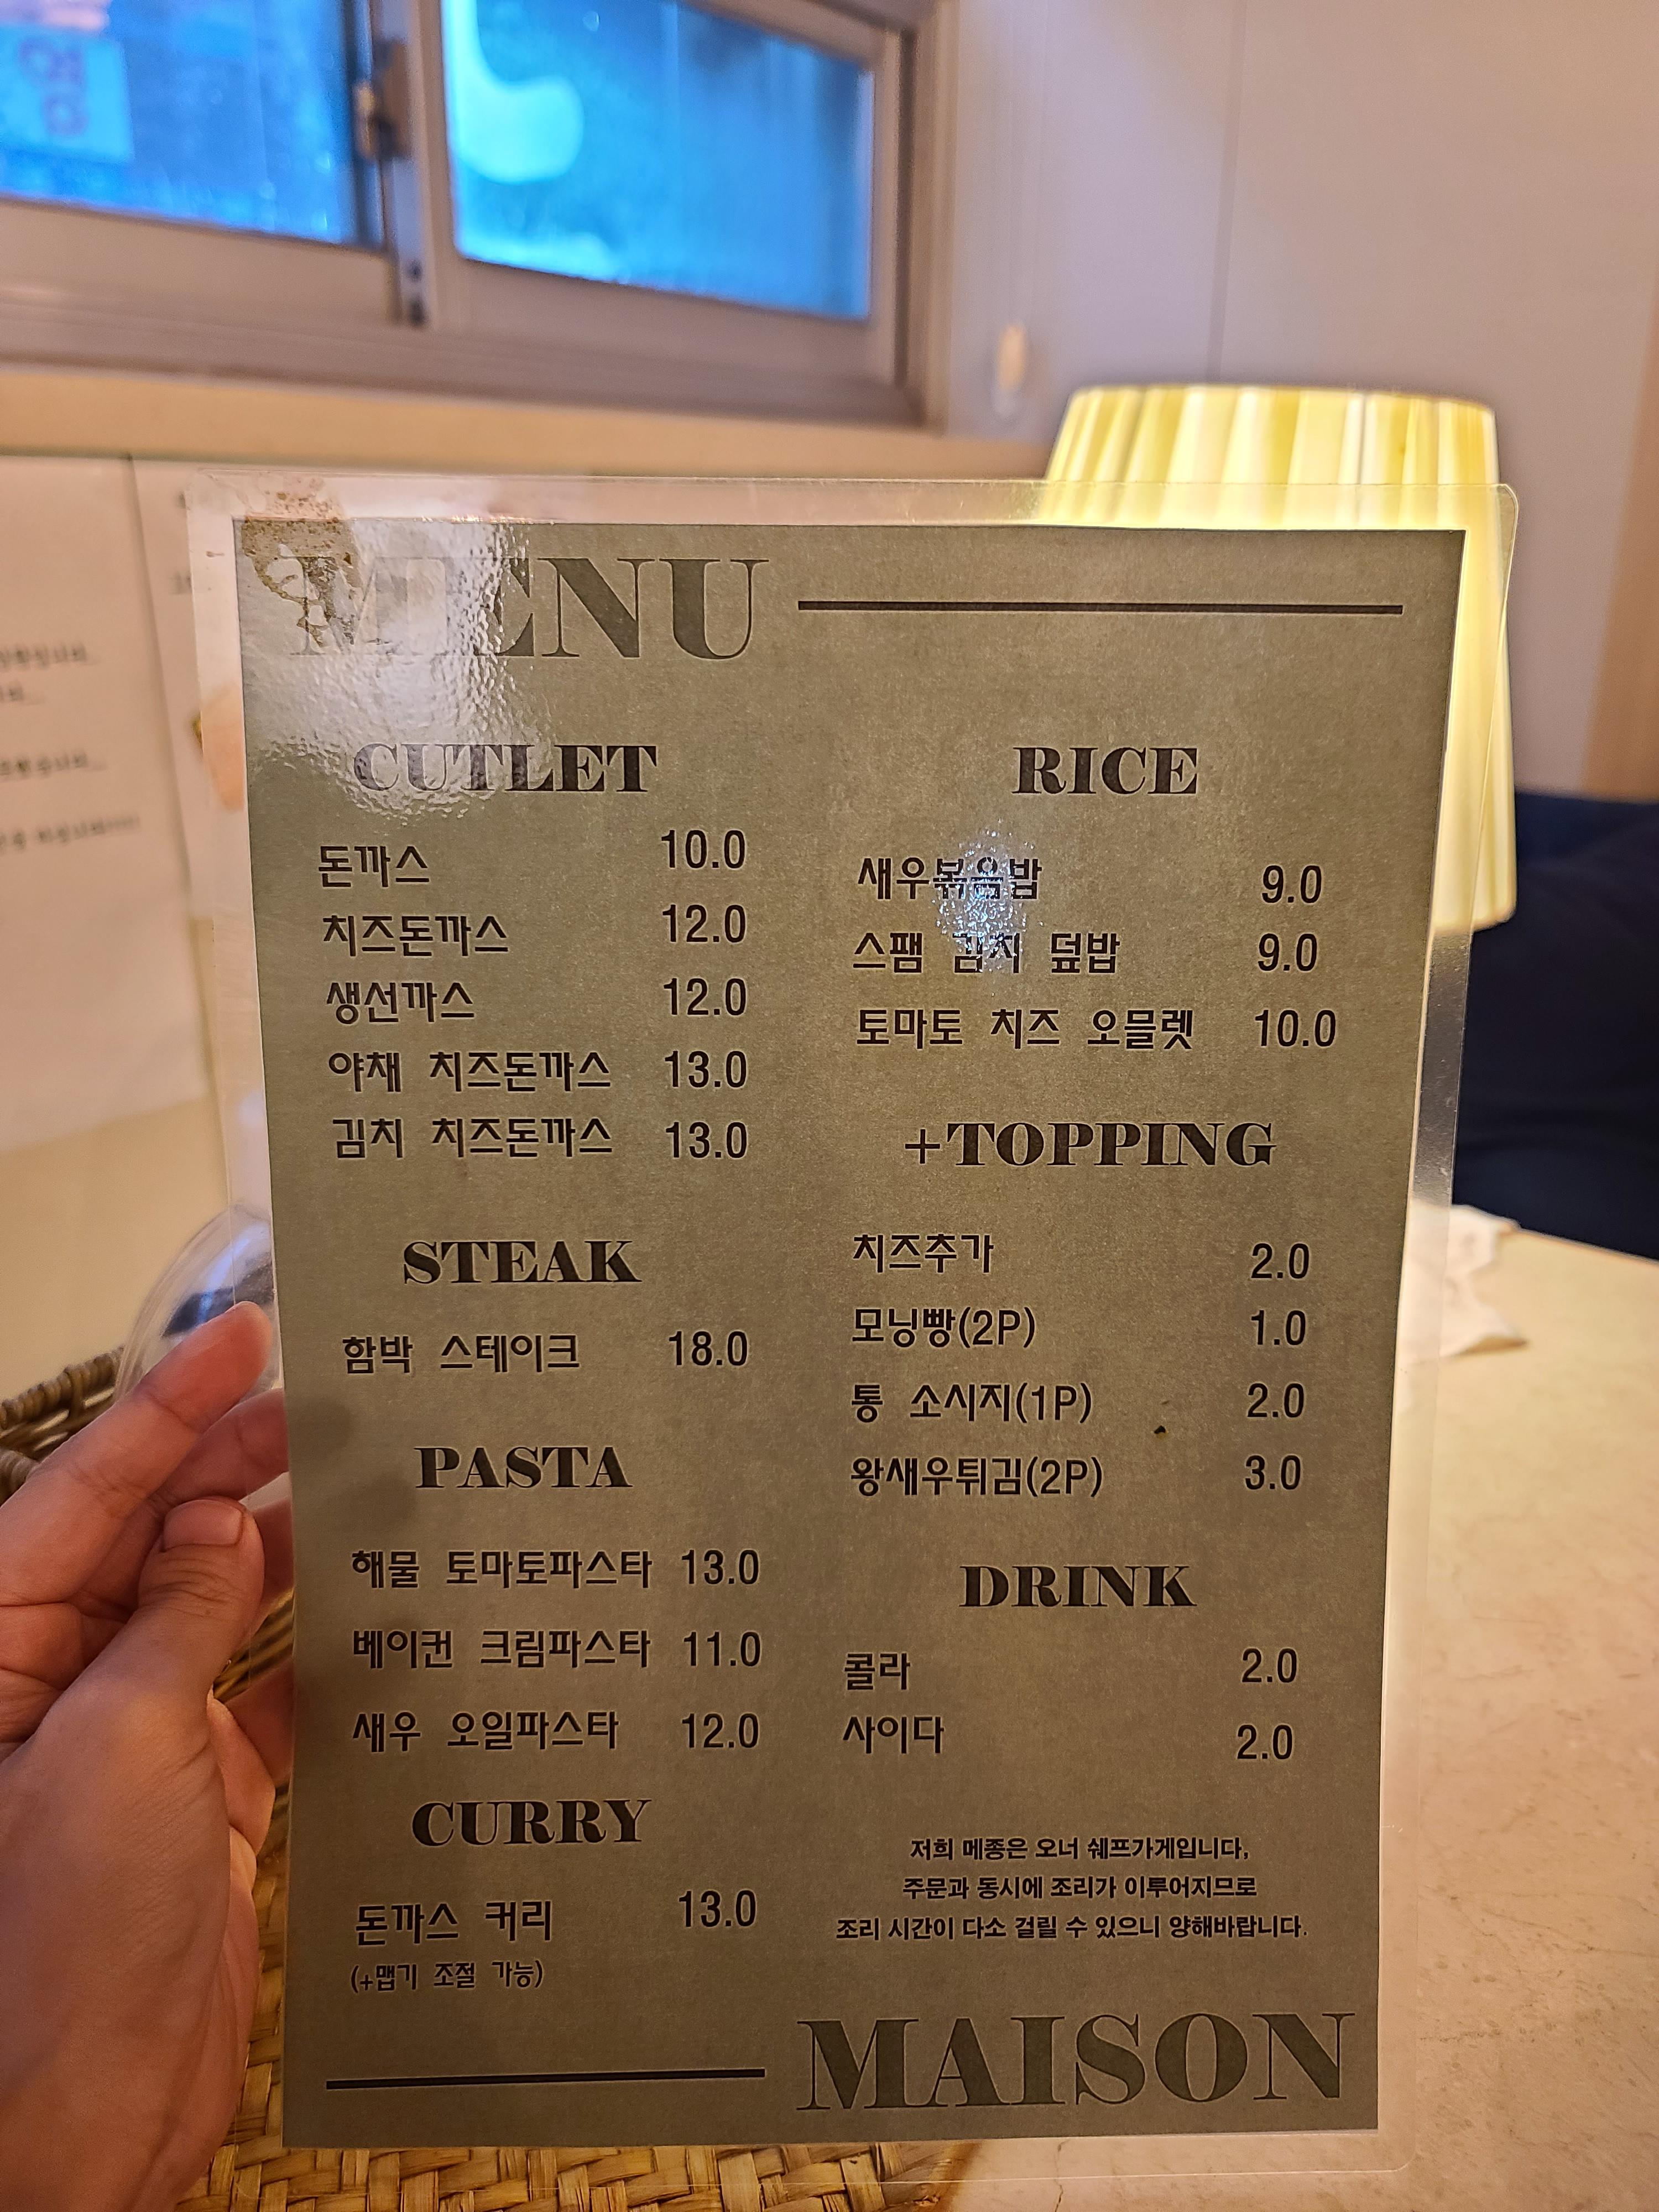 MENU
CUTLET
돈까스 10.0
치즈돈까스 12.0
생선까스 12.0
야채 치즈돈까스 13.0
김치 치즈돈까스 13.0
STEAK
함박 스테이크 18.0
PASTA
해물 토마토파스타 13.0
베이컨 크림파스타 11.0
새우 오일파스타 12.0
CURRY
돈까스 커리 13.0
(+맵기 조절 가능)
RICE
새우볶음밥 9.0
스팸 김치 덮밥 9.0
토마토 치즈 오믈렛 10.0
+TOPPING
치즈추가 2.0
모닝빵(2P) 1.0
통 소시지(1P) 2.0
왕새우튀김(2P) 3.0
DRINK
콜라 2.0
사이다 2.0
저희 메종은 오너 쉐프가게입니다,
주문과 동시에 조리가 이루어지므로
조리 시간이 다소 걸릴 수 있으니 양해바랍니다.
MAISON